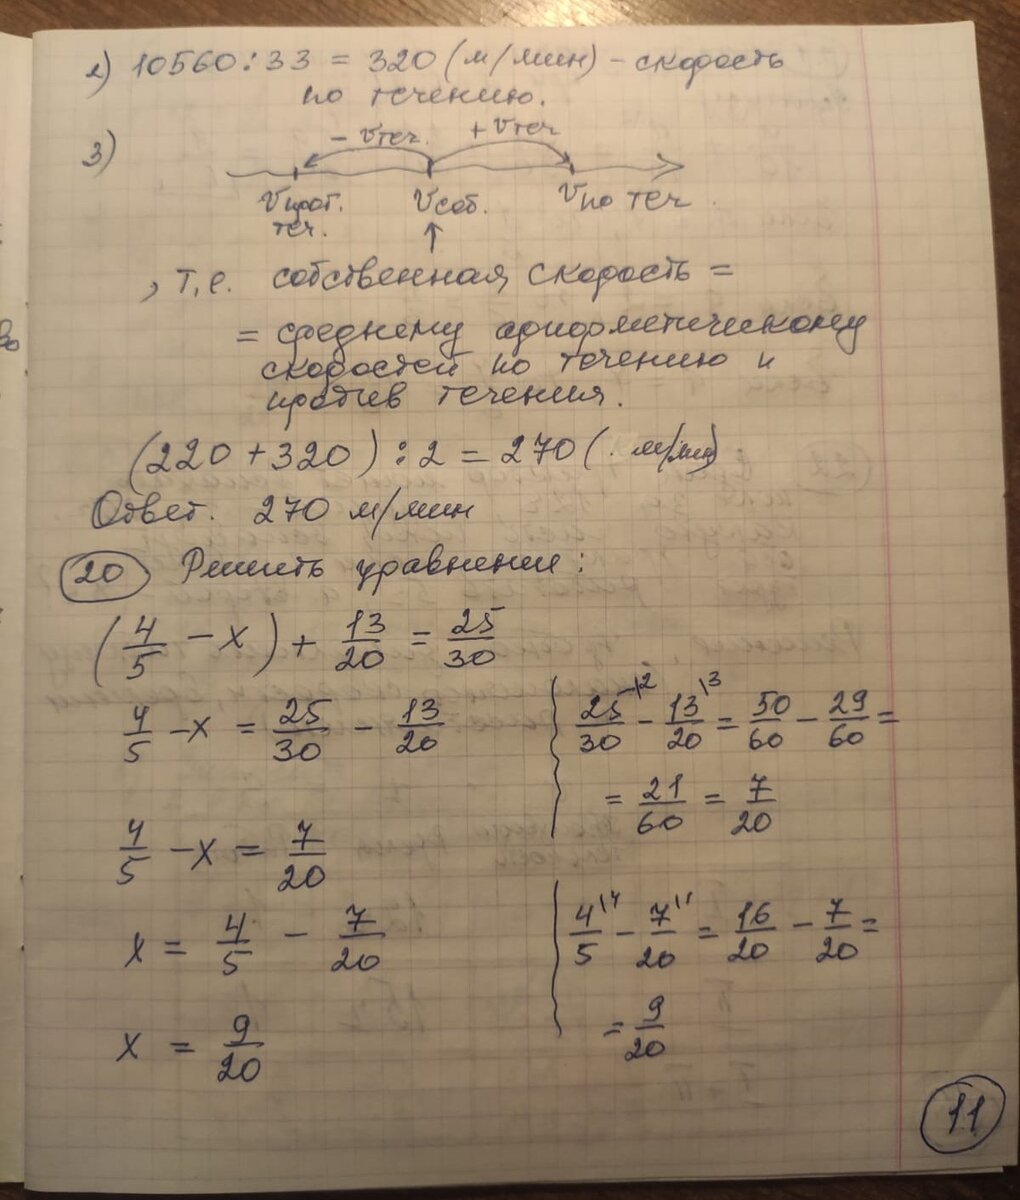 2) 10560 : 33 = 320 (м/мин) - скорость
по течению.
3)
- vтеч. + vтеч
vпрот. теч. vсоб. vпо теч.
, т.е. собственная скорость =
= среднему арифметическому
скоростей по течению и
против течения.
(220 + 320) : 2 = 270 (м/мин)
Ответ. 270 м/мин
20 Решить уравнение:
(4/5 - x) + 13/20 = 25/30
4/5 - x = 25/30 - 13/20
25/30 \2 - 13/20 \3 = 50/60 - 29/60 =
= 21/60 = 7/20
4/5 - x = 7/20
x = 4/5 - 7/20
4/5 \4 - 7/20 \1 = 16/20 - 7/20 =
= 9/20
x = 9/20
11